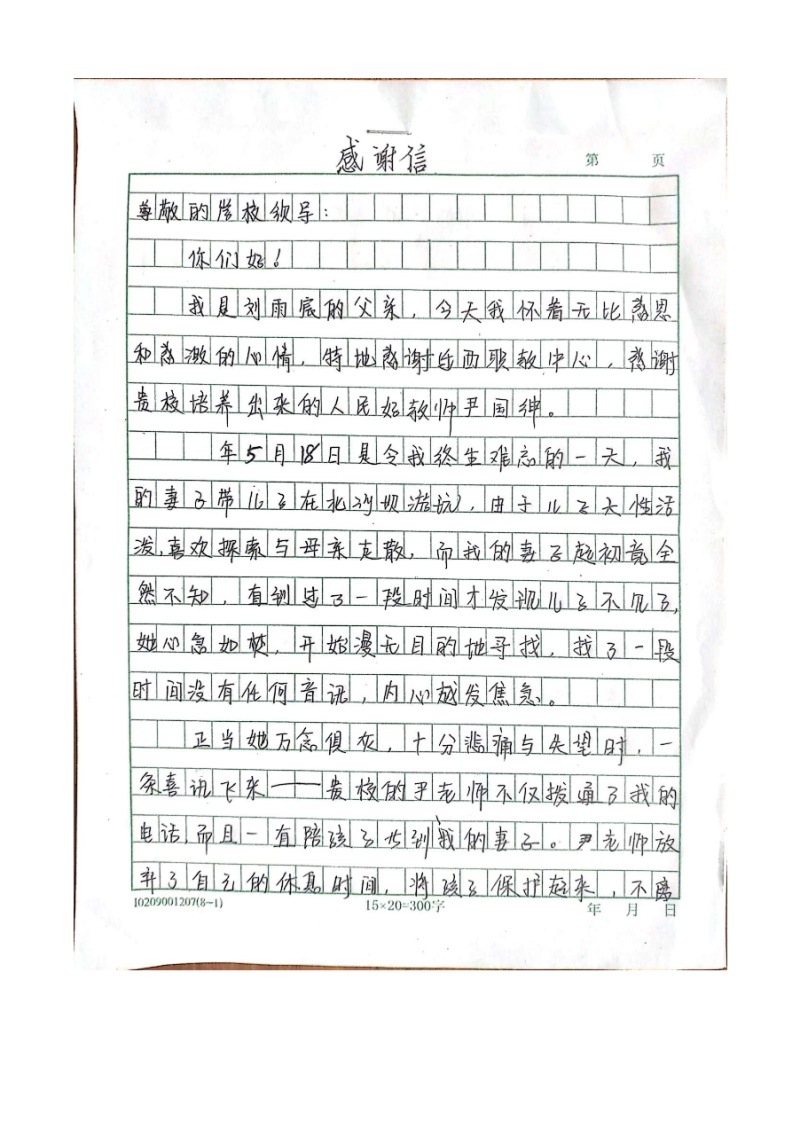 感谢信
第 页
尊敬的学校领导:
你们好!
我是刘雨宸的父亲,今天我怀着无比感恩
和感激的心情,特地感谢丘西职教中心,感谢
贵校培养出来的人民好教师尹国绅。
年5月18日是令我终生难忘的一天,我
的妻子带儿子在北河坝游玩,由于儿子天性活
泼,喜欢探索与母亲走散,而我的妻子起初竟全
然不知,直到过了一段时间才发现儿子不见了,
她心急如焚,开始漫无目的地寻找,找了一段
时间没有任何音讯,内心越发焦急。
正当她万念俱灰,十分悲痛与失望时,一
条喜讯飞来——贵校的尹老师不仅拨通了我的
电话,而且一直陪孩子等到我的妻子。尹老师放
弃了自己的休息时间,将孩子保护起来,不离
10209001207(8-1)
15×20=300字
年 月 日